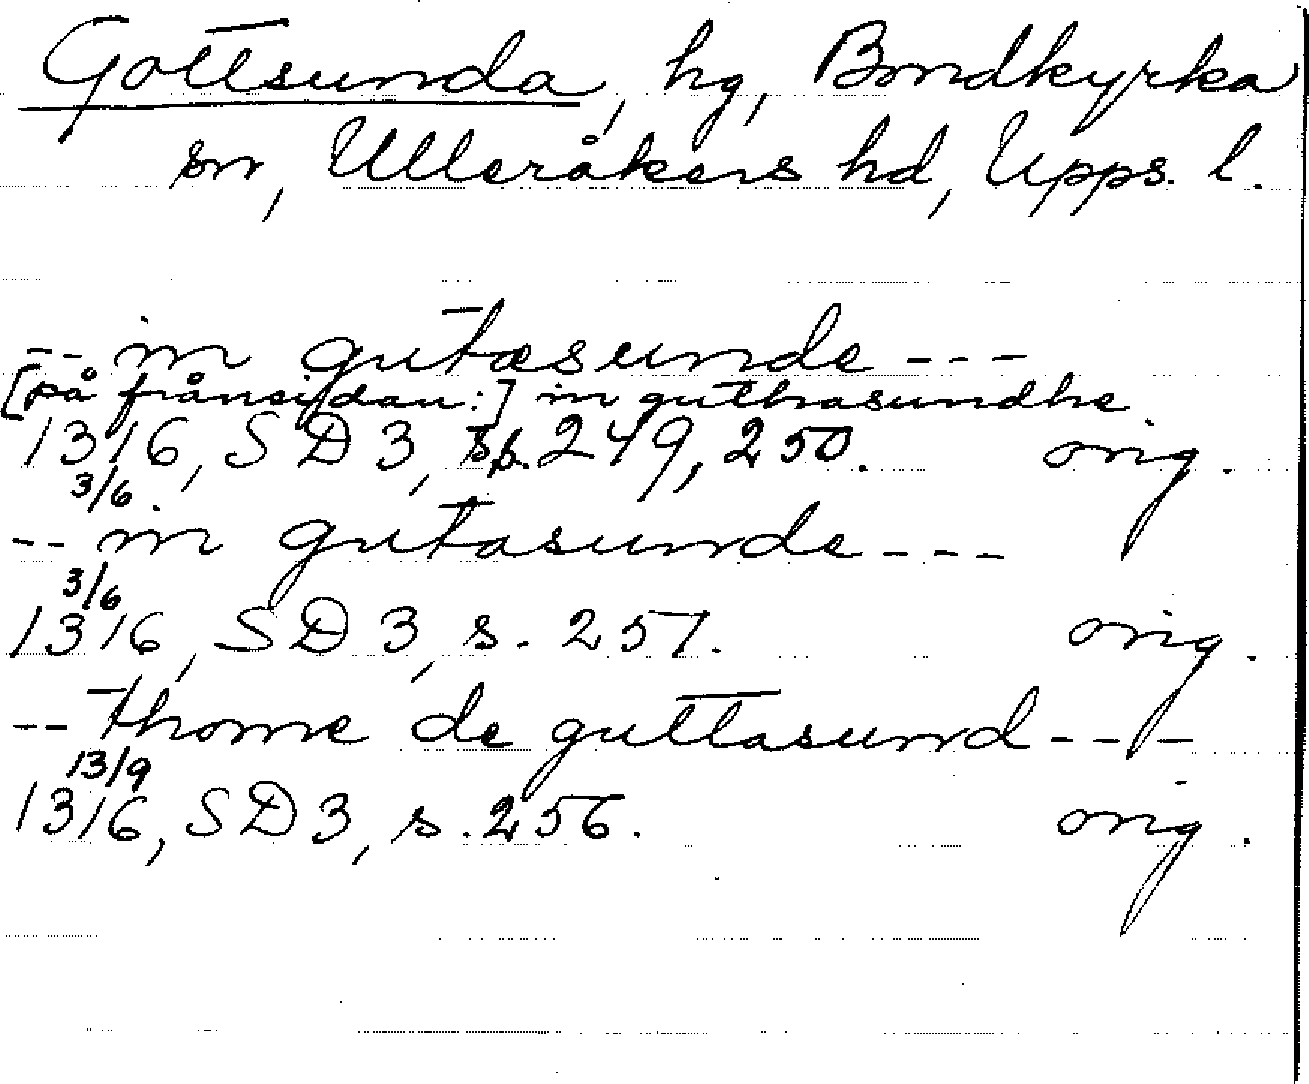 Gottsunda, hg, Bondkyrka
sn, Ulleråkers hd, Upps. l.
-- in gutæsunde ---
[på frånsidan:] in guthasundhe
1316, SD 3, s. 249, 250. orig.
3/6.
-- in gutasunde ---
3/6
1316, SD 3, s. 251. orig.
-- thome de guttasund ---
13/9
1316, SD 3, s. 256. orig.